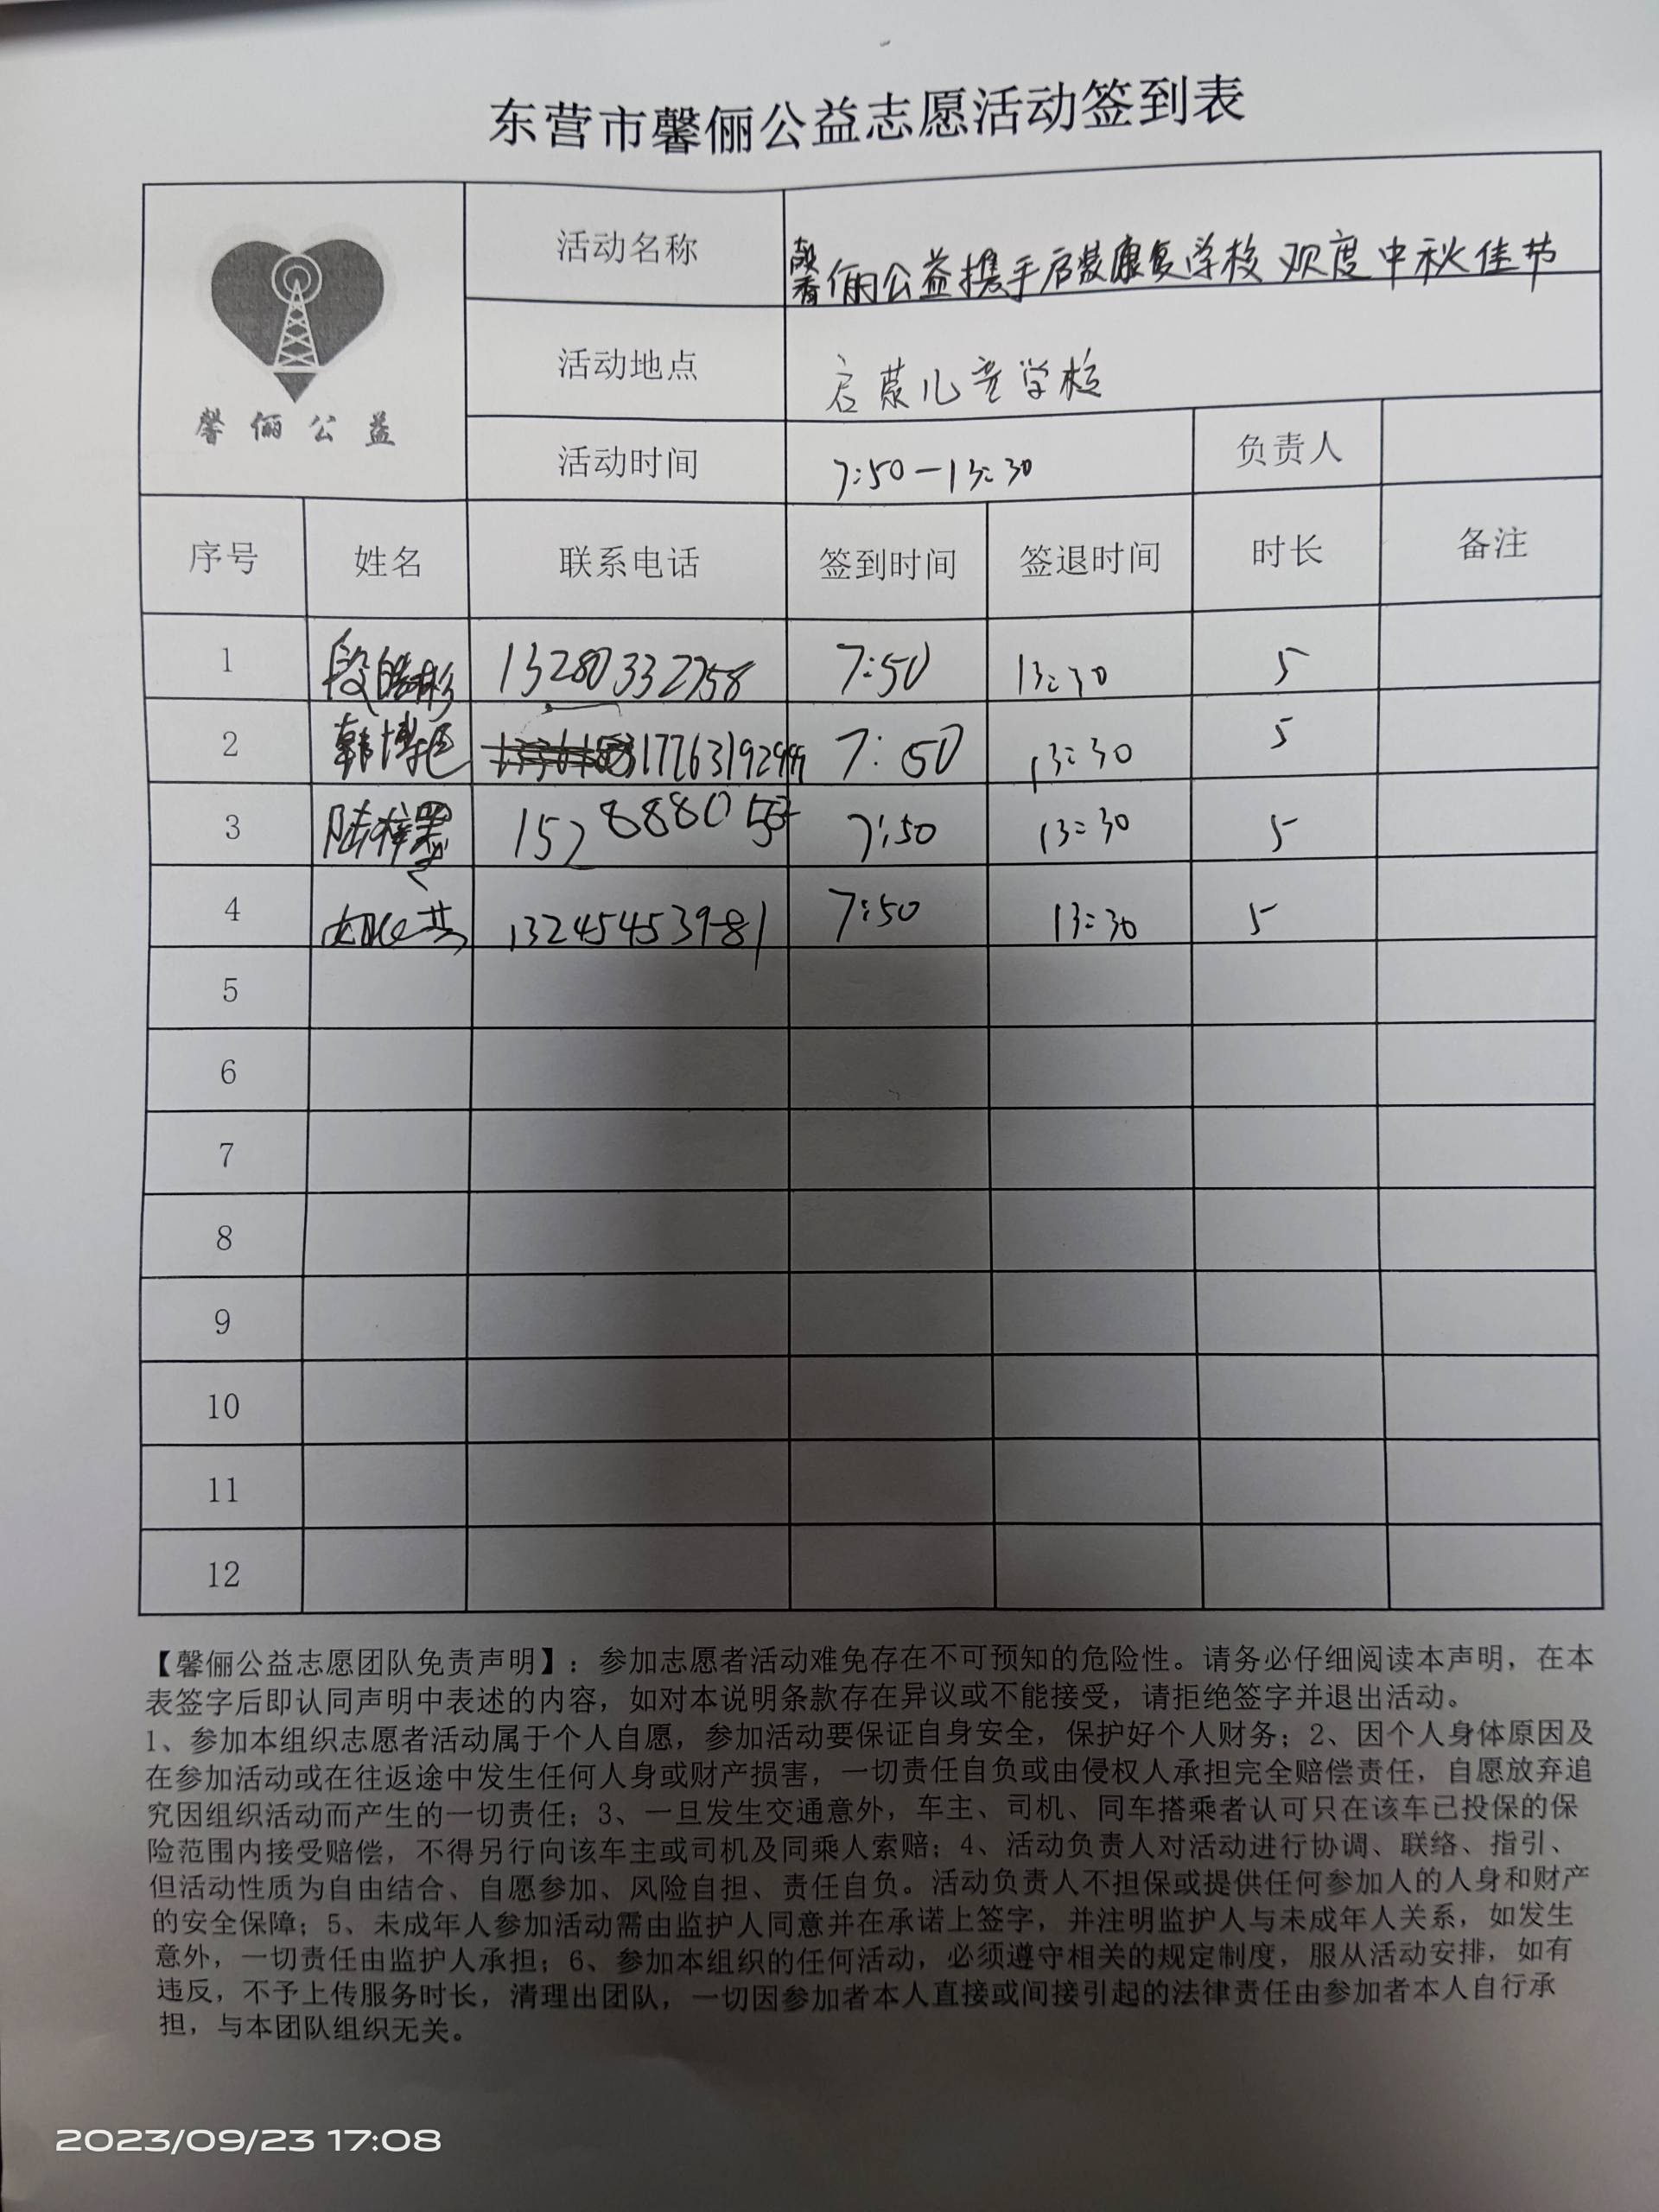 东营市馨俪公益志愿活动签到表
馨俪公益
活动名称 馨俪公益携手启蒙康复学校 观度中秋佳节
活动地点 启蒙儿童学校
活动时间 7:50-13:30 负责人
序号 姓名 联系电话 签到时间 签退时间 时长 备注
1 段皓彬 13280332758 7:50 13:30 5
2 韩博 17763192999 7:50 13:30 5
3 陆梓墨 7:50 13:30 5
4 13245453981 7:50 13:30 5
5
6
7
8
9
10
11
12
【馨俪公益志愿团队免责声明】：参加志愿者活动难免存在不可预知的危险性。请务必仔细阅读本声明，在本
表签字后即认同声明中表述的内容，如对本说明条款存在异议或不能接受，请拒绝签字并退出活动。
1、参加本组织志愿者活动属于个人自愿，参加活动要保证自身安全，保护好个人财务；2、因个人身体原因及
在参加活动或在往返途中发生任何人身或财产损害，一切责任自负或由侵权人承担完全赔偿责任，自愿放弃追
究因组织活动而产生的一切责任；3、一旦发生交通意外，车主、司机、同车搭乘者认可只在该车已投保的保
险范围内接受赔偿，不得另行向该车主或司机及同乘人索赔；4、活动负责人对活动进行协调、联络、指引、
但活动性质为自由结合、自愿参加、风险自担、责任自负。活动负责人不担保或提供任何参加人的人身和财产
的安全保障；5、未成年人参加活动需由监护人同意并在承诺上签字，并注明监护人与未成年人关系，如发生
意外，一切责任由监护人承担；6、参加本组织的任何活动，必须遵守相关的规定制度，服从活动安排，如有
违反，不予上传服务时长，清理出团队，一切因参加者本人直接或间接引起的法律责任由参加者本人自行承
担，与本团队组织无关。
2023/09/23 17:08